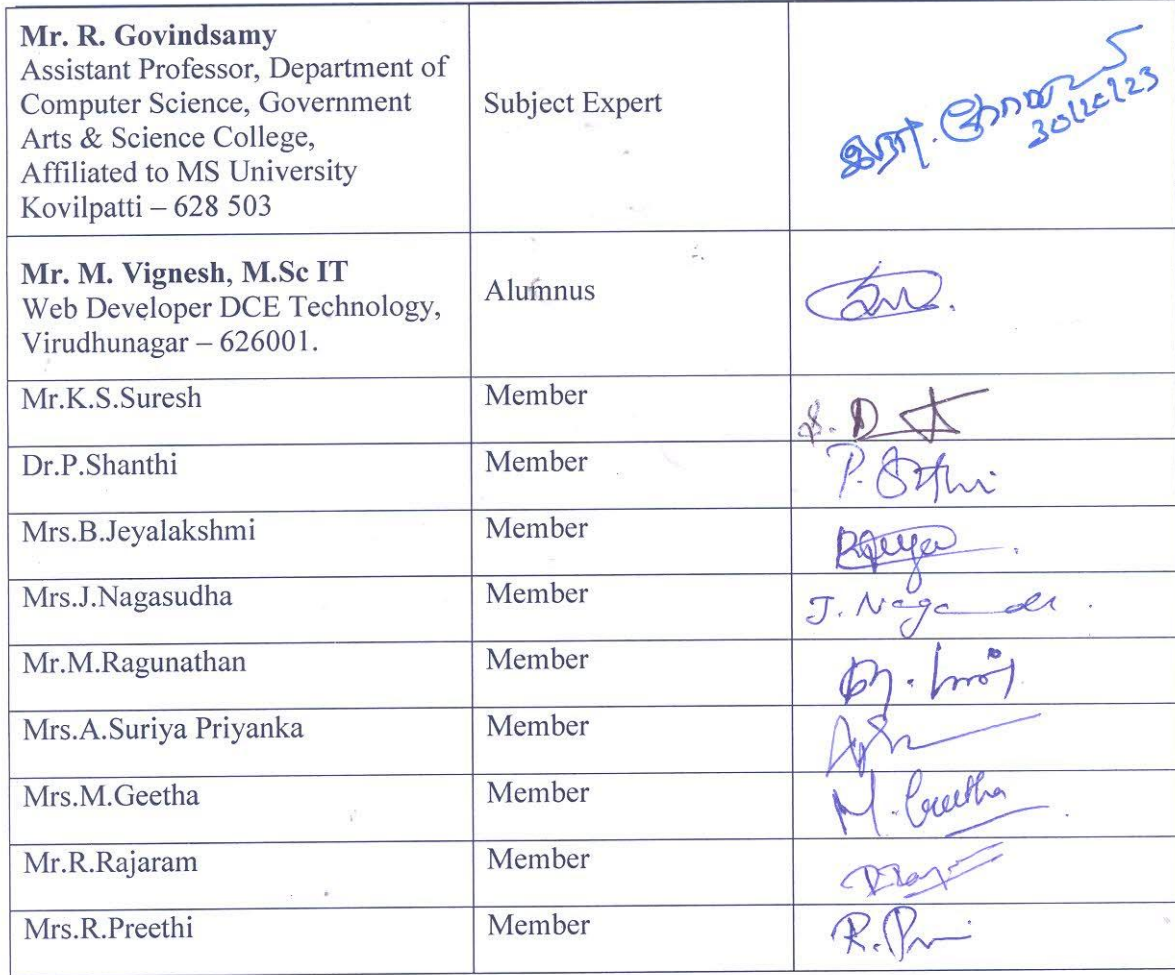 Mr. R. Govindsamy
Assistant Professor, Department of
Computer Science, Government
Arts & Science College,
Affiliated to MS University
Kovilpatti – 628 503
Subject Expert
Mr. M. Vignesh, M.Sc IT
Web Developer DCE Technology,
Virudhunagar – 626001.
Alumnus
Mr.K.S.Suresh
Member
Dr.P.Shanthi
Member
Mrs.B.Jeyalakshmi
Member
Mrs.J.Nagasudha
Member
J.
Mr.M.Ragunathan
Member
Mrs.A.Suriya Priyanka
Member
Mrs.M.Geetha
Member
M. Geetha
Mr.R.Rajaram
Member
Mrs.R.Preethi
Member